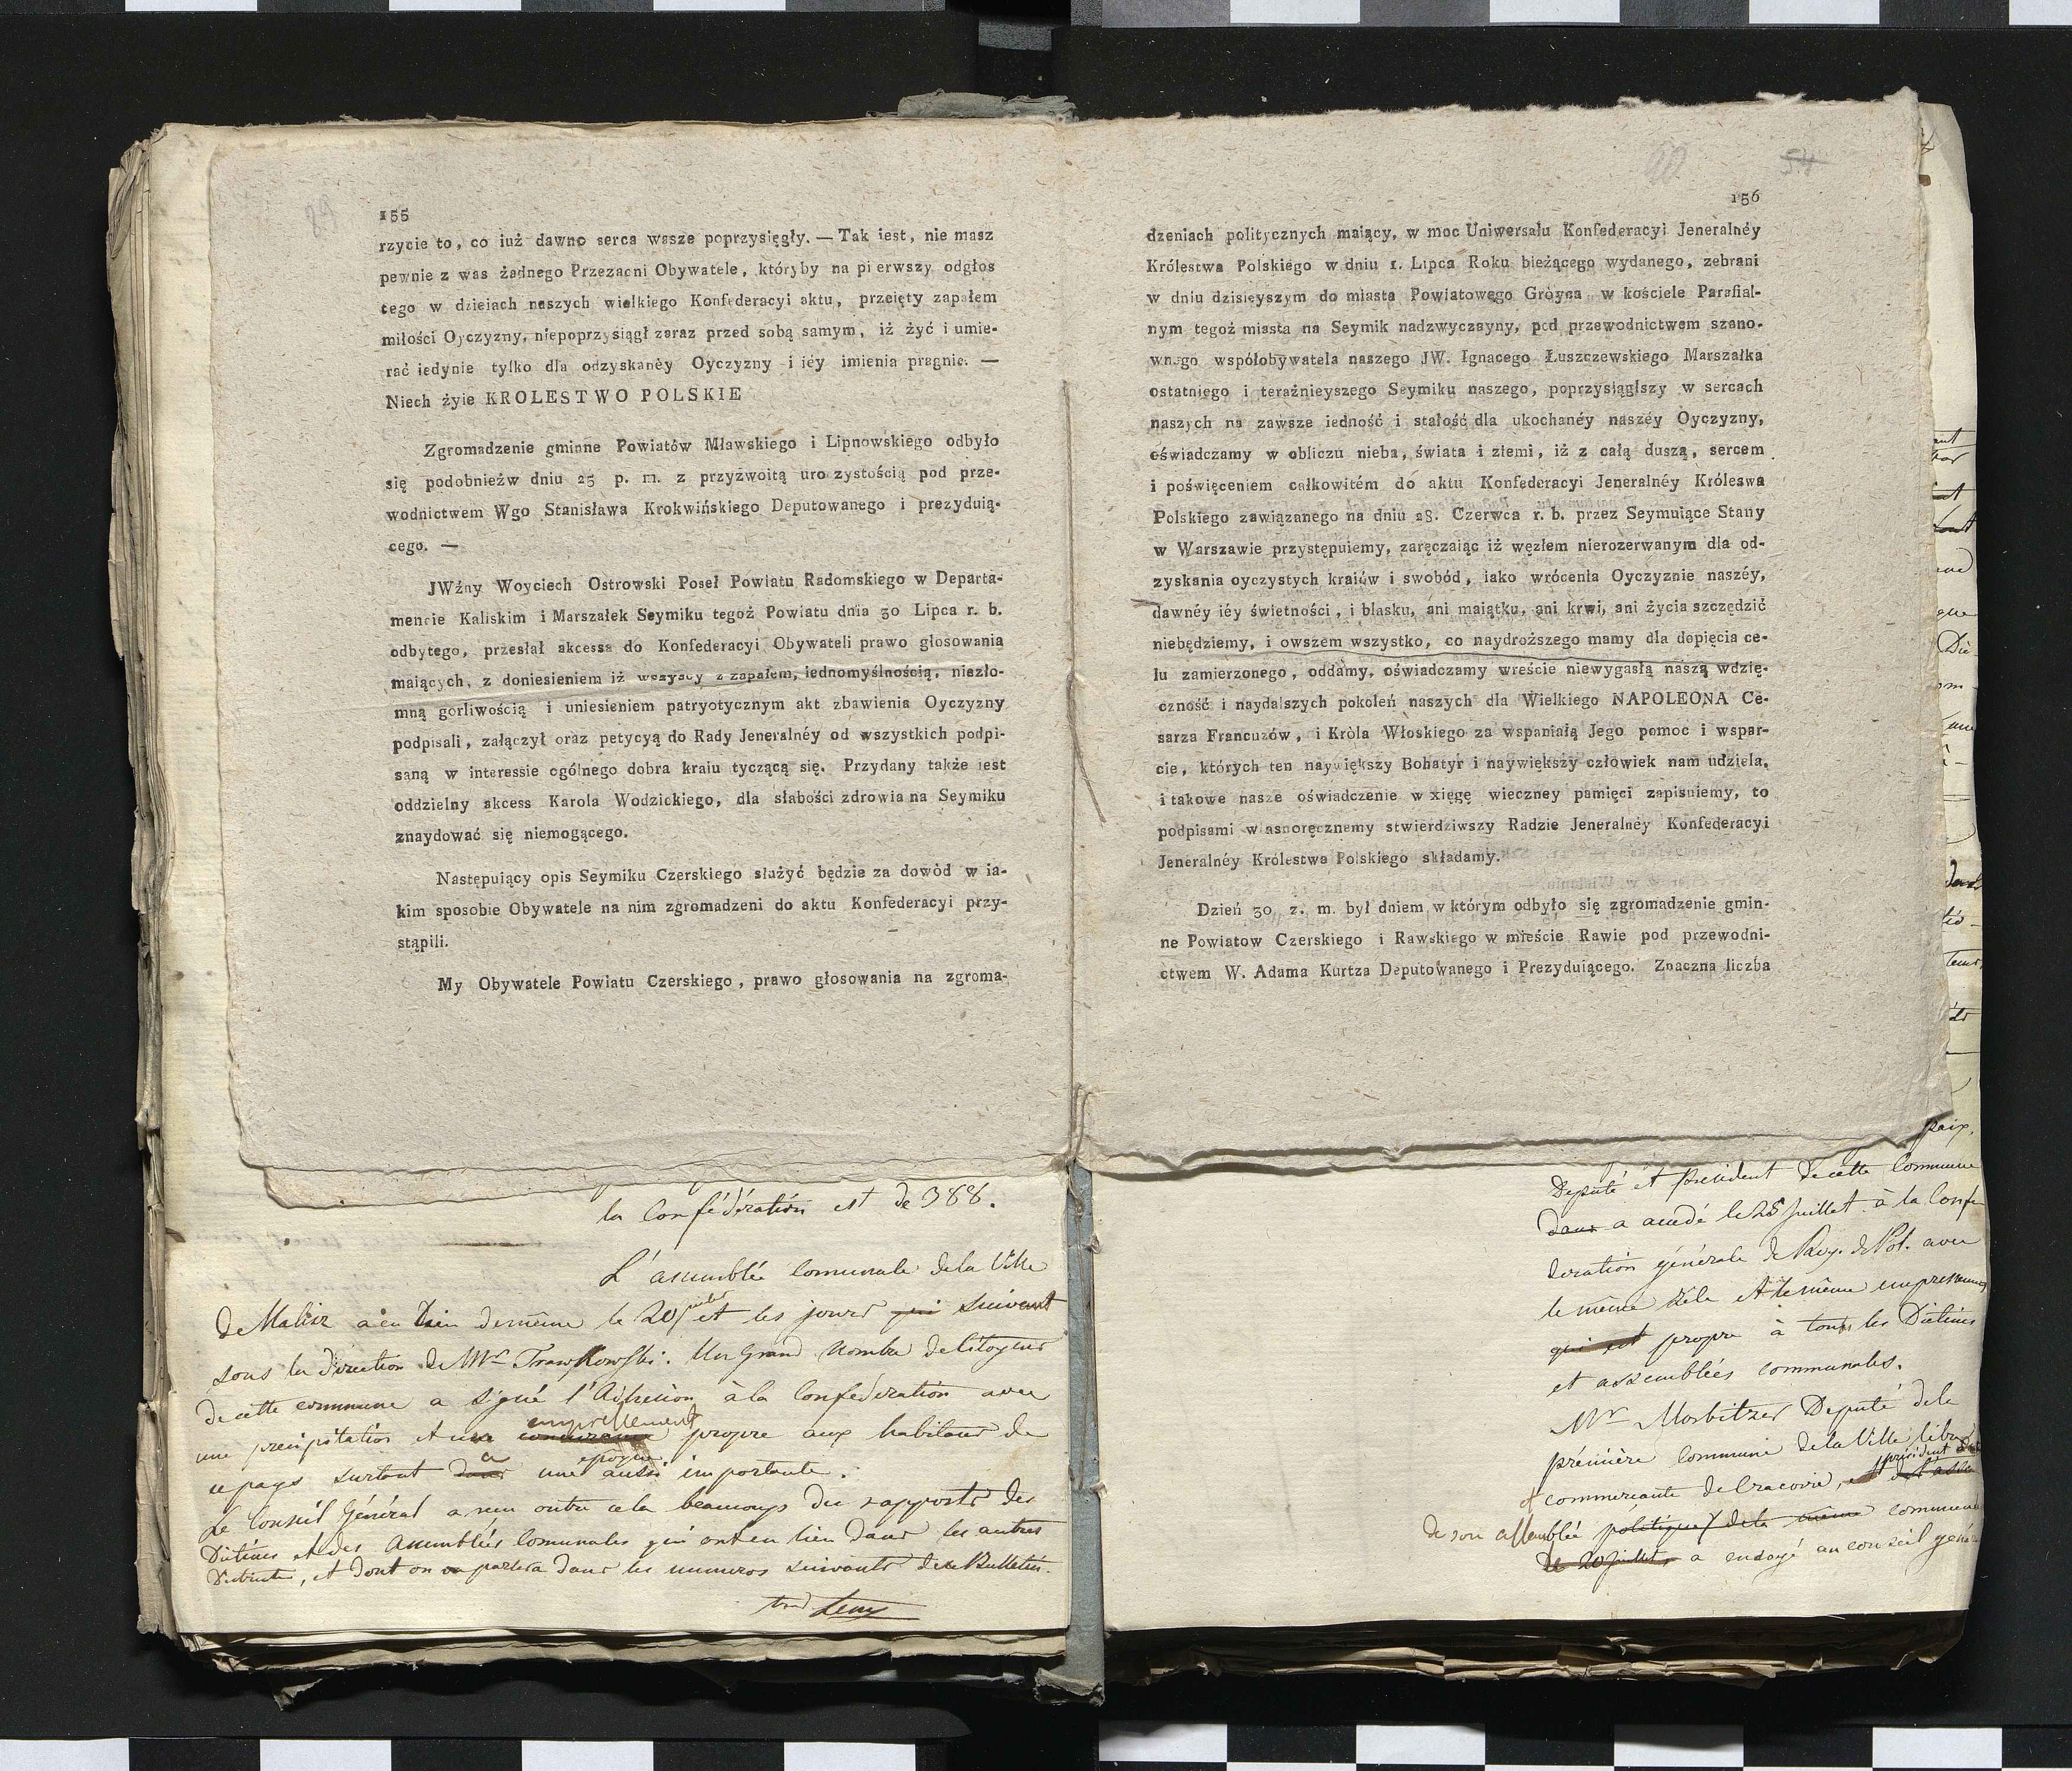 89
155
rzycie to, co iuż dawno serca wasze poprzysięgły. — Tak iest, nie masz
pewnie z was żadnego Przezacni Obywatele, któryby na pierwszy odgłos
tego w dzieiach naszych wielkiego Konfederacyi aktu, przeięty zapałem
miłości Oyczyzny, niepoprzysiągł zaraz przed sobą samym, iż żyć i umie-
rać iedynie tylko dla odzyskanéy Oyczyzny i iéy imienia pragnie. —
Niech żyie KROLESTWO POLSKIE
Zgromadzenie gminne Powiatów Mławskiego i Lipnowskiego odbyło
się podobnieźw dniu 25 p. m. z przyźwoitą uroczystością pod prze-
wodnictwem Wgo Stanisława Krokwińskiego Deputowanego i prezyduią-
cego. —
JWźny Woyciech Ostrowski Poseł Powiatu Radomskiego w Departa-
mencie Kaliskim i Marszałek Seymiku tegoż Powiatu dnia 30 Lipca r. b.
odbytego, przesłał akcessa do Konfederacyi Obywateli prawo głosowania
maiących, z doniesieniem iż wszyscy z zapałem, iednomyślnością, niezło-
mną gorliwością i uniesieniem patryotycznym akt zbawienia Oyczyzny
podpisali, załączył oraz petycyą do Rady Jeneralnéy od wszystkich podpi-
saną w interessie ogólnego dobra kraiu tyczącą się. Przydany także iest
oddzielny akcess Karola Wodzickiego, dla słabości zdrowia na Seymiku
znaydować się niemogącego.
Następuiący opis Seymiku Czerskiego służyć będzie za dowód w ia-
kim sposobie Obywatele na nim zgromadzeni do aktu Konfederacyi przy-
stąpili.
My Obywatele Powiatu Czerskiego, prawo głosowania na zgroma-
la Confédération est de 388.
L'assemblée Comunale de la Ville
de Kalisz a eu lieu de même le 20 juillet et les jours qui suivent
sous la direction de Mr Trawkowski. Un Grand Nombre de Citoyens
de cette commune a signé l'Adhesion à la Confederation avec
une precipitation et un empressement propre aux habitans de
ce pays surtout à une epoque aussi importante.
Le Conseil Général a reçu outre cela beaucoup de rapports des
Diétines et des Assemblées Comunales qui ont eu lieu dans les autres
Districts, et dont on parlera dans les numeros suivants de ce Bulletin.
54
156
dzeniach politycznych maiący, w moc Uniwersału Konfederacyi Jeneralnéy
Królestwa Polskiego w dniu 1. Lipca Roku bieżącego wydanego, zebrani
w dniu dzisieyszym do miasta Powiatowego Gróyca w kościele Parafial-
nym tegoż miasta na Seymik nadzwyczayny, pod przewodnictwem szano-
wnego współobywatela naszego JW. Ignacego Łuszczewskiego Marszałka
ostatniego i teraźnieyszego Seymiku naszego, poprzysiągłszy w sercach
naszych na zawsze iedność i stałość dla ukochanéy naszéy Oyczyzny,
oświadczamy w obliczu nieba, świata i ziemi, iż z całą duszą, sercem
i poświęceniem całkowitém do aktu Konfederacyi Jeneralnéy Króleswa
Polskiego zawiązanego na dniu 28. Czerwca r. b. przez Seymuiące Stany
w Warszawie przystępuiemy, zaręczaiąc iż węzłem nierozerwanym dla od-
zyskania oyczystych kraiów i swobód, iako wrócenia Oyczyznie naszéy,
dawnéy iéy świetności, i blasku, ani maiątku, ani krwi, ani życia szczędzić
niebędziemy, i owszem wszystko, co naydroższego mamy dla dopięcia ce-
lu zamierzonego, oddamy, oświadczamy wreście niewygasłą naszą wdzię-
czność i naydalszych pokoleń naszych dla Wielkiego NAPOLEONA Ce-
sarza Francuzów, i Króla Włoskiego za wspaniałą Jego pomoc i wspar-
cie, których ten naywiększy Bohatyr i naywiększy człowiek nam udziela,
i takowe nasze oświadczenie w xięgę wieczney pamięci zapisuiemy, to
podpisami własnoręcznemy stwierdziwszy Radzie Jeneralnéy Konfederacyi
Jeneralnéy Królestwa Polskiego składamy.
Dzień 30 z. m. był dniem w którym odbyło się zgromadzenie gmin-
ne Powiatow Czerskiego i Rawskiego w mieście Rawie pod przewodni-
ctwem W. Adama Kurtza Deputowanego i Prezyduiącego. Znaczna liczba
paix,
Deputé et President de cette Commune
dans a accedé le 28 Juillet à la Confe
deration générale de Roy. de Pol. avec
le même zèle et le même empressement
qui est propre à tous les Diétines
et assemblées communales.
Mr Morbitzer Deputé de la
première commune de la Ville libre
commerçante de Cracovie, et président
de son assemblée politique de la même commune
le 20 juillet, a envoyé au conseil géné